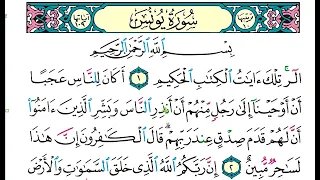 سُورَةُ يُونُسَ
بِسْمِ ٱللَّهِ ٱلرَّحْمَٰنِ ٱلرَّحِيمِ
الٓر ۚ تِلْكَ ءَايَٰتُ ٱلْكِتَٰبِ ٱلْحَكِيمِ ١ أَكَانَ لِلنَّاسِ عَجَبًا
أَنْ أَوْحَيْنَآ إِلَىٰ رَجُلٍ مِّنْهُمْ أَنْ أَنذِرِ ٱلنَّاسَ وَبَشِّرِ ٱلَّذِينَ ءَامَنُوٓا۟
أَنَّ لَهُمْ قَدَمَ صِدْقٍ عِندَ رَبِّهِمْ ۗ قَالَ ٱلْكَٰفِرُونَ إِنَّ هَٰذَا
لَسَٰحِرٌ مُّبِينٌ ٢ إِنَّ رَبَّكُمُ ٱللَّهُ ٱلَّذِى خَلَقَ ٱلسَّمَٰوَٰتِ وَٱلْأَرْضَ